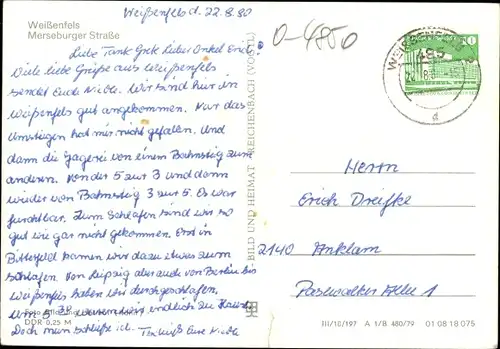 Weißenfels
Merseburger Straße
Weißenfels d. 22.8.80
Liebe Tante Grete Lieber Onkel Erich
Viele liebe Grüße aus Weißenfels
sendet Eude Nicole. Wir sind hier in
Weißenfels gut angekommen. Nur das
Umsteigen hat mir nicht gefallen. Und
dann die Jagerei von einem Bahnsteig zum
anderen. Von der 5 zur 3 und dann
wieder von Bahnsteig 3 zur 5. Es war
furchtbar. Zum Schlafen sind wir so
gut wie gar nicht gekommen. Erst in
Bitterfeld kamen wir dazu etwas zum
schlafen. Von Leipzig aber auch von Berlin bis
Weißenfels haben wir durchgeschlafen,
um 5 waren wir endlich zu Hause.
Doch nun schließe ich. Tschüß Eure
DDR 0,25 M
BILD UND HEIMAT REICHENBACH (VOGTL)
0-4850
WEISSENFELS
485
d
1
Herrn
Erich Dreifke
2140 Anklam
Pasewalker Allee 1
III/10/197 A 1/B 480/79 01 08 18 075